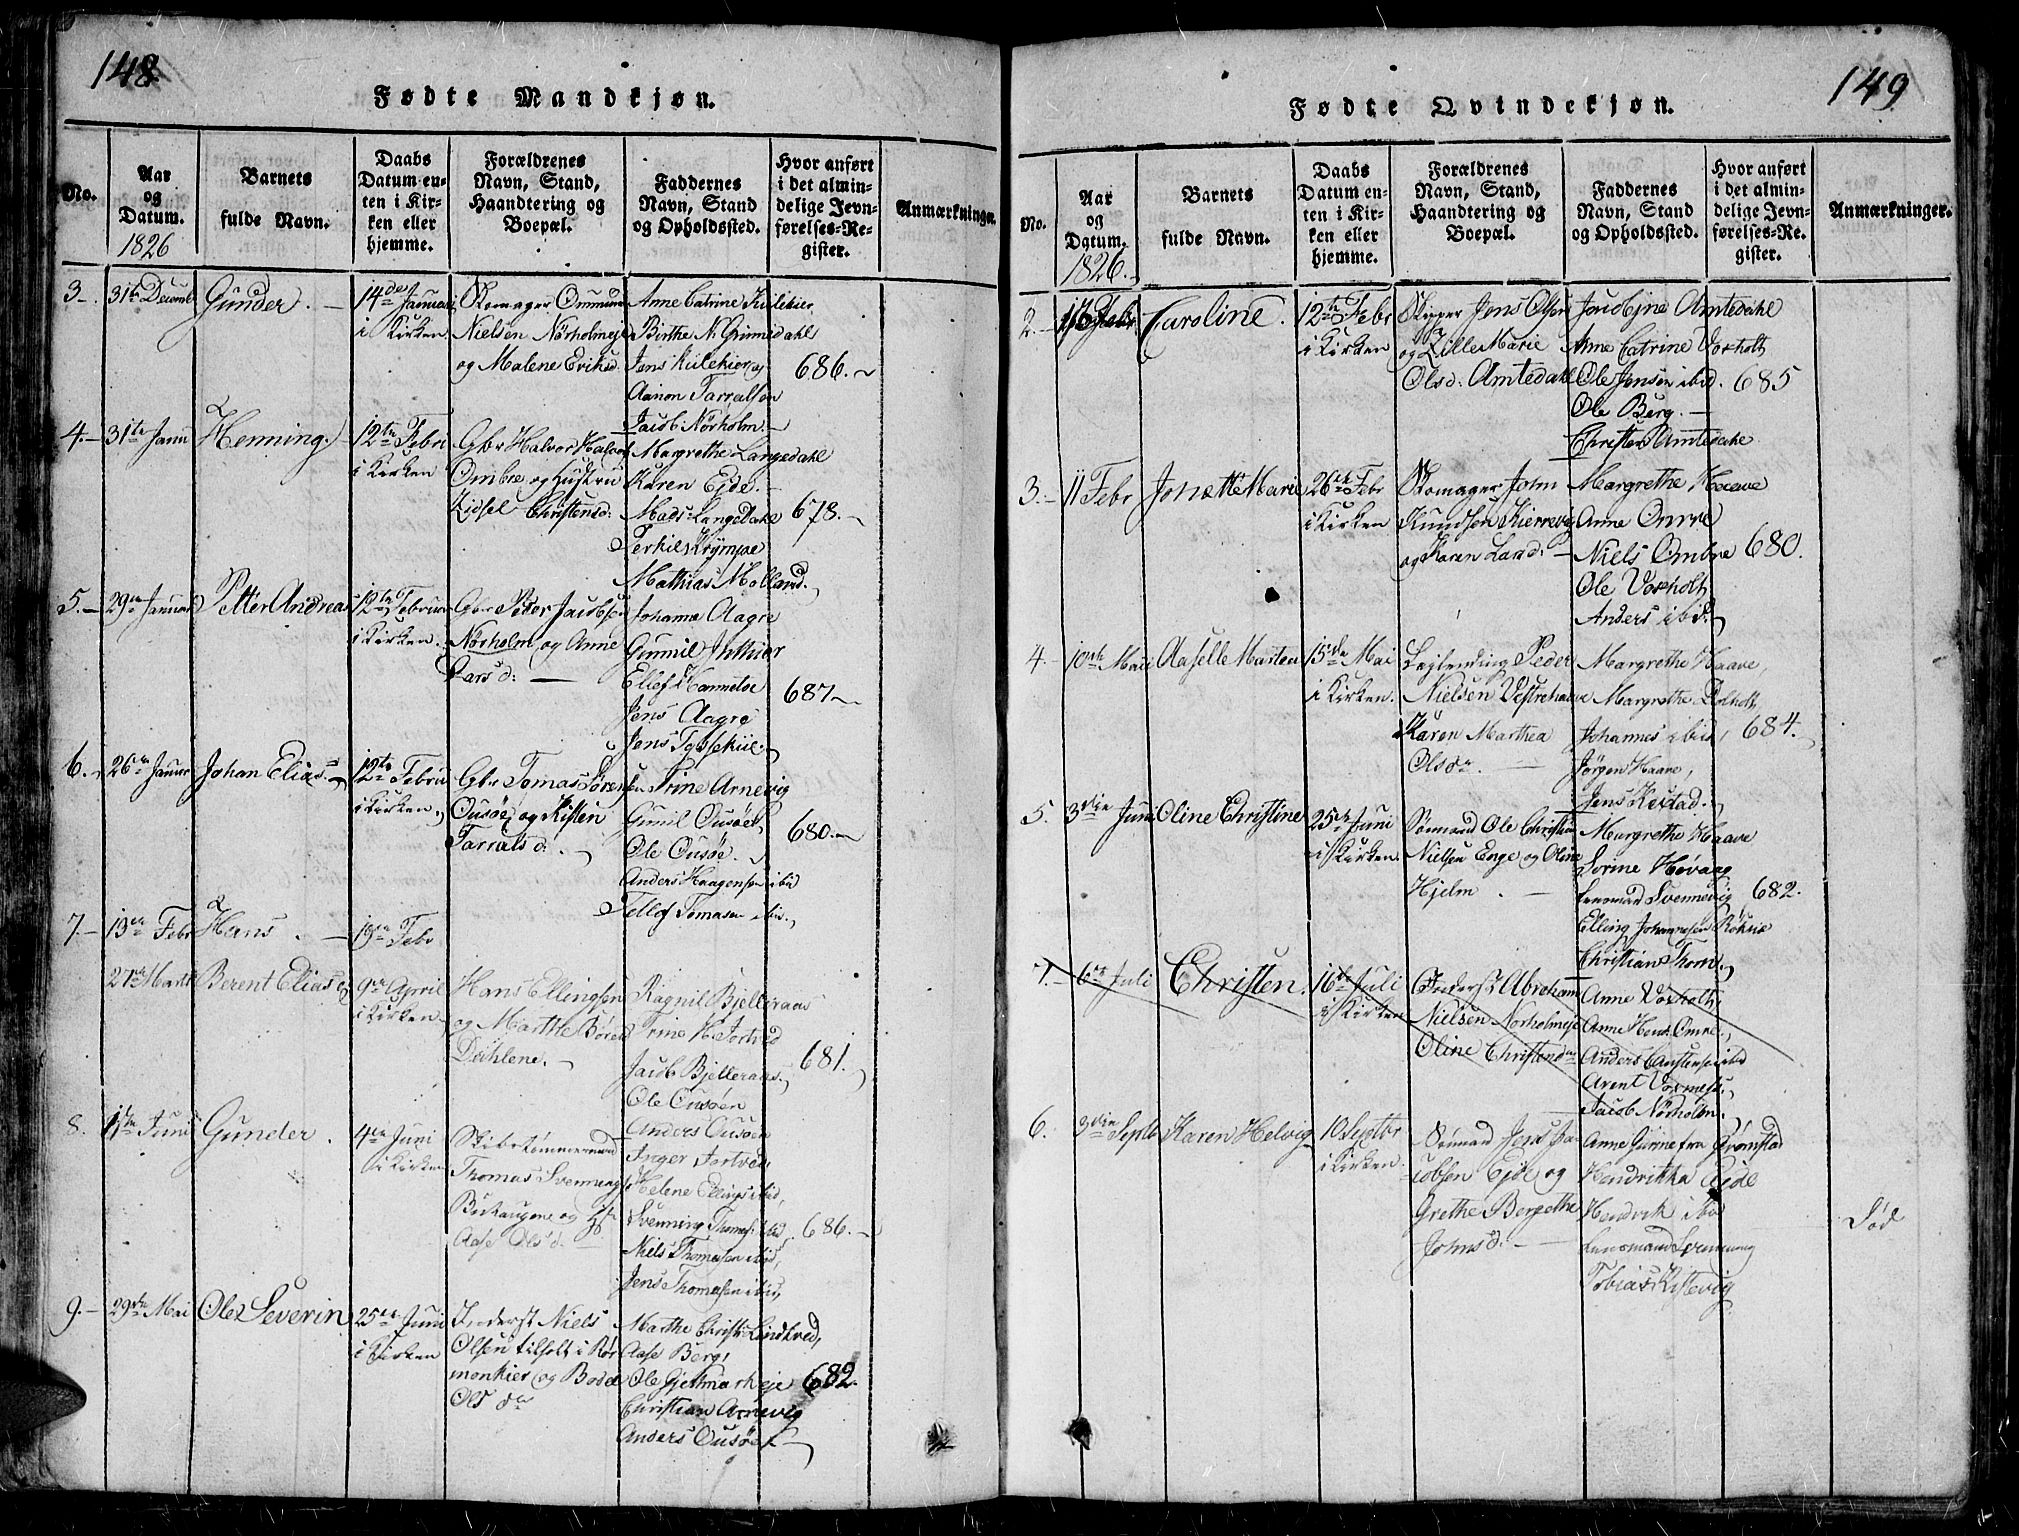 148
Fødte Mandkjøn.
No.
Aar
og
Datum.
1826
Barnets
fulde Navn.
Daabs
Datum en-
ten i Kir-
ken eller
hjemme.
Forældrenes
Navn, Stand,
Haandtering og
Boepæl.
Faddernes
Navn, Stand
og Opholdssted.
Hvor anført
i det almin-
delige Jevn-
førelses-Re-
gister.
Anmærkninger.
3.
31te Decemb
Gunder.
14de Januari
i Kirken.
Skomager
Nielsen Nörholmeje
og Malene Eriksd.
Anne Catrine Kulekier
Birthe N. Grimedahl
Jens Kulekier og
Aanon Tarralson
Jacob Nörholm.
686.
4.
31te Janu
Henning.
12te Febru
i Kirken
Gbr Halvor Halvors
Ombre og Hustru
Zidsel Christensd:
Margrethe Langedahl
Karen Ejde.
Mads Langedahl
Terkil
Mathias Molland.
678.
5.
29de Januar
Petter Andreas
12te Februar
i Kirken.
Gbr Peder Jacobsen
Nörholm og Anne
Lars d:
Johanne Aagre
Gunnil
Ellef Hannetoe
Jens Aagre
Jens
687
6.
26de Januar
Johan Elias.
12te Februar
i Kirken.
Gbr Tomas Sören
Ousöe og Kisten
Tarrals d.
Trine Arnevig
Gunnil Ousöe
Ole Ousöe.
Anders Haagensen ibid
Tellof Tomasen ibid.
680.
7.
13de Febr
Hans.
19de Febr
27de Marti
Berent Elias
9de April
i Kirken.
Hans Ellingsen
og Marthe Bören
Dahlene.
Ragnil Bjelleraas
Trine H. Tortved
Jacob Bjelleraas.
Ole Ousöen
Anders Ousöen
681.
8.
1ste Juni
Gunder.
4de Juni
i Kirken
Skibstömmermand
Thomas Svennings
og
Aase Olsd.
Inger Tortved,
Helene Ellings ibid,
Svenning Thomas. ibid
Niels Thomassen ibid,
Jens Thomassen ibid,
686.
9.
29de Mai
Ole Severin
25de Juni
i Kirken
Inderst Niels
Olsen tilholt i Rör
monkier og Bodel
Ols dr
Marthe Christi Lindtved,
Aase Berg,
Ole Gjetmarkeje
Christian Arnevig
Anders Ousöe
682.
149
Fødte Qvindekjøn.
No.
Aar
og
Datum.
1826.
Barnets
fulde Navn.
Daabs
Datum en-
ten i Kir-
ken eller
hjemme.
Forældrenes
Navn, Stand,
Haandtering og
Boepæl.
Faddernes
Navn, Stand
og Opholdssted.
Hvor anført
i det almin-
delige Jevn-
førelses-Re-
gister.
Anmærkninger.
2.
Febr.
Caroline.
12te Febr
i Kirken
Skipper Jens Olsen
og Zille Marie
Olsd: Amtedahl
Amtedahl
Anne Catrine Voxholt
Ole Jensen ibid.
Ole Berg.
Christen Amtedahl
685
3.
11 Febr
Jonætte Marie
26de Febr
i Kirken
Skomager John
Knudsen Kierreve
og Karen Land:
Margrethe Haave
Anne Omre
Niels Ombre
Ole Voxholt
Anders ibid.
680.
4.
10nde Mai
Aaselle Marten
15de Mai
i Kirken.
Lejlending Peder
Nielsen Vestrehaave
Karen Marthea
Olsdr.
Margrethe Haave,
Margrethe
Johannes ibid,
Jörgen Haave,
Jens
684.
5.
3die Juni
Oline Christine
25de Juni
i Kirken.
Sömand Ole Christian
Nielsen Enge og Oline
Hjelm.
Margrethe Haave
Sorine Hövaag
Lensmand Svennevig
Elling Johannesen
Christian Thom.
682.
7.
6te Juli
Christen.
16de Juli
i Kirken
Inderst Abraham
Nielsen Norholmeje
Oline Christensdr
Anne Voxholt,
Anne Hend. Omre,
Anders Carstensen ibid
Arent
Jacob Nörholm.
6.
3die Septb
Karen Helvig
10 Septbr
i Kirken.
Sömand Jens Ja-
cobsen Ejde og
Grethe Bergethe
Johnsd.
Anne Gurine fra Grömstad
Hendrikka Eide
Hendrik ibid
Lensmand Svennevig
Tobias Kistevig
Död